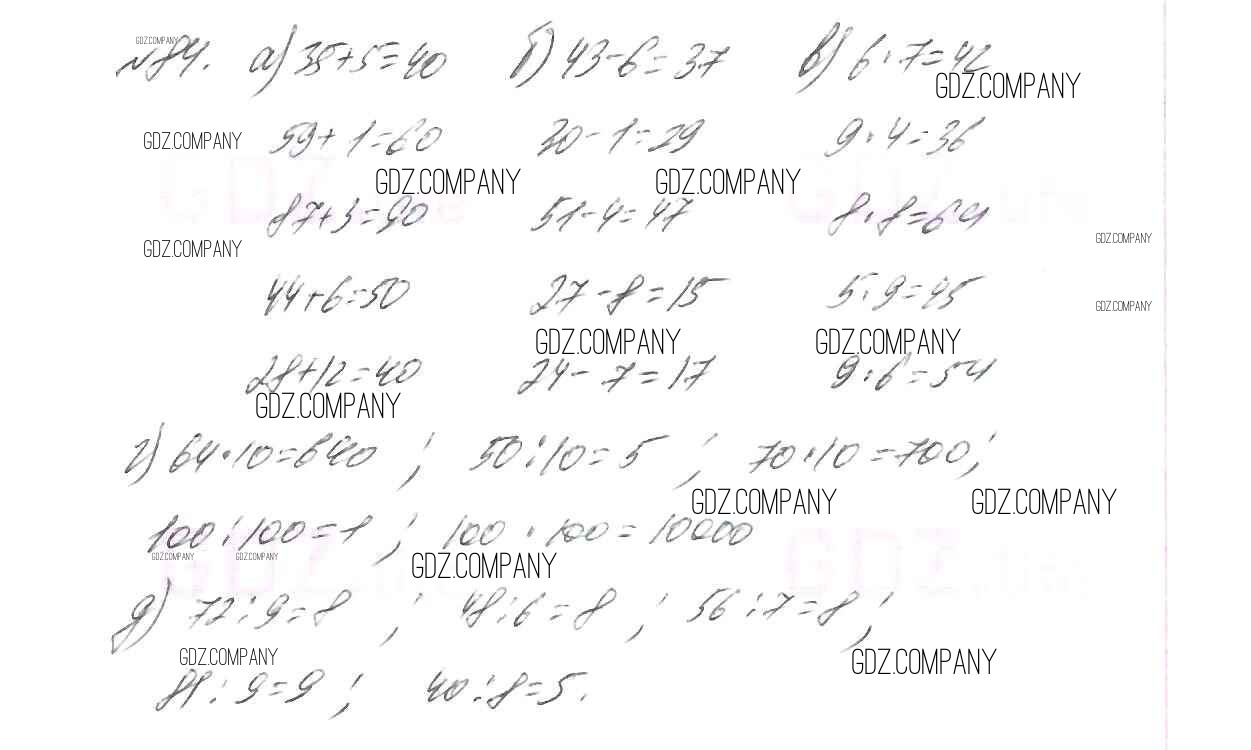 GDZ.COMPANY
№84. а) 35+5=40 б) 43-6=37 в) 6·7=42
GDZ.COMPANY
GDZ.COMPANY 59+1=60 30-1=29 9·4=36
GDZ.COMPANY GDZ.COMPANY
87+3=90 51-4=47 8·8=64
GDZ.COMPANY GDZ.COMPANY
44+6=50 27-8=15 5·9=45
GDZ.COMPANY
GDZ.COMPANY GDZ.COMPANY
28+12=40 24-7=17 9·6=54
GDZ.COMPANY
г) 64·10=640 ; 50:10=5 ; 70·10=700;
GDZ.COMPANY GDZ.COMPANY
100:100=1 ; 100·100=10000
GDZ.COMPANY GDZ.COMPANY GDZ.COMPANY
д) 72:9=8 ; 48:6=8 ; 56:7=8;
GDZ.COMPANY GDZ.COMPANY
81:9=9 ; 40:8=5.